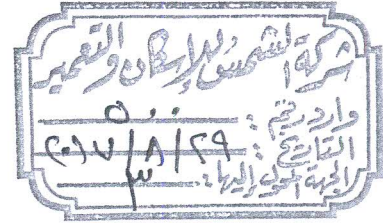 شركة الشمس للإسكان والتعمير
وارد رقم : ٥٠٠
التاريخ : ٢٠١٧/٨/٢٩
الجهة المحول إليها : ٣